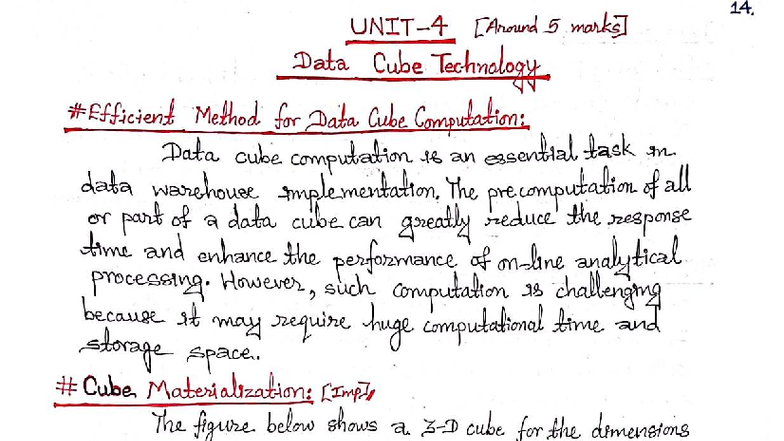 14.
UNIT-4 [Around 5 marks]
Data Cube Technology
# Efficient Method for Data Cube Computation:
Data cube computation is an essential task in
data warehouse implementation. The precomputation of all
or part of a data cube can greatly reduce the response
time and enhance the performance of on-line analytical
processing. However, such computation is challenging
because it may require huge computational time and
storage space.
# Cube Materialization: [Imp]
The figure below shows a 3-D cube for the dimensions